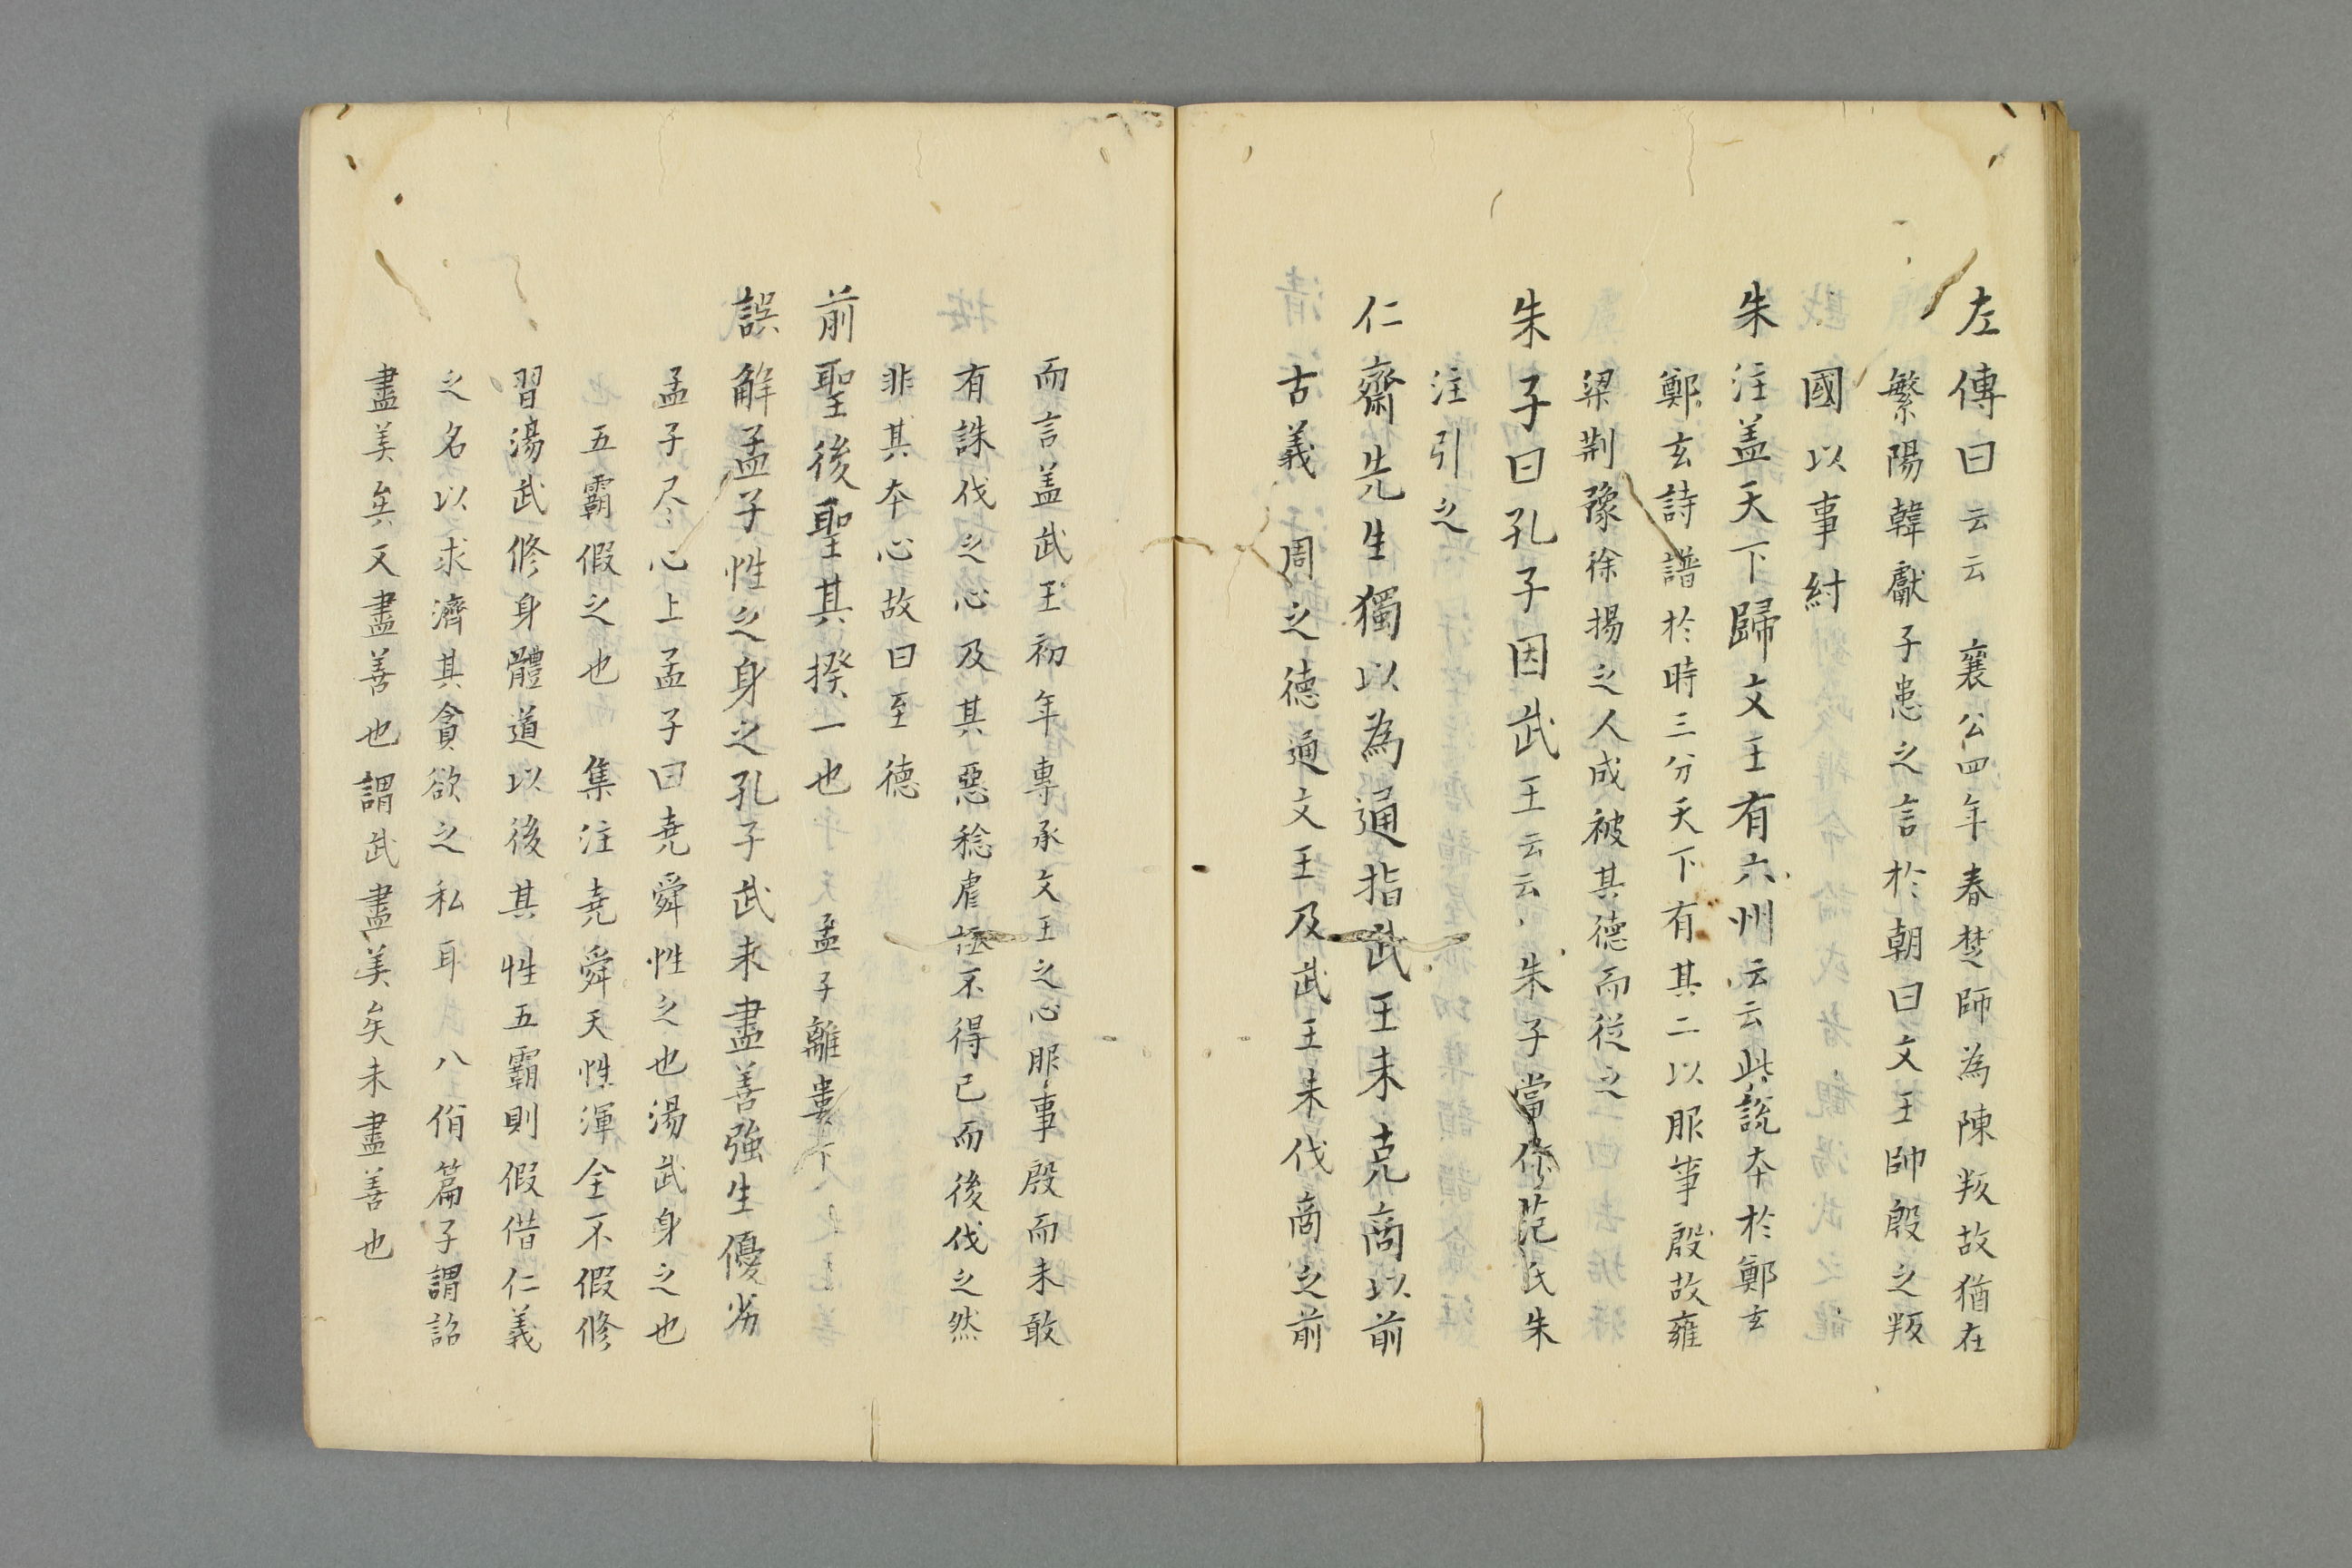 左傳曰云云　襄公四年春楚師為陳叛故猶在
繁陽韓獻子患之言於朝曰文王帥殷之叛
國以事紂
朱注盖天下歸文王有六州云云此說本於鄭玄
鄭玄詩譜於時三分天下有其二以服事殷故雍
梁荆豫徐揚之人咸被其德而從之
朱子曰孔子因武王云云朱子當作范氏朱
注引之
仁齋先生獨以為通指武王未克商以前
古義周之德通文王及武王未伐商之前
而言盖武王初年專承文王之心服事殷而未敢
有誅伐之心及其惡稔虐極不得已而後伐之然
非其本心故曰至德
前聖後聖其揆一也　孟子離婁下
誤解孟子性之身之孔子武未盡善強生優劣
孟子尽心上孟子曰堯舜性之也湯武身之也
五霸假之也　集注堯舜天性渾全不假修
習湯武修身體道以後其性五霸則假借仁義
之名以求濟其貪欲之私耳　八佾篇子謂韶
盡美矣又盡善也謂武盡美矣未盡善也